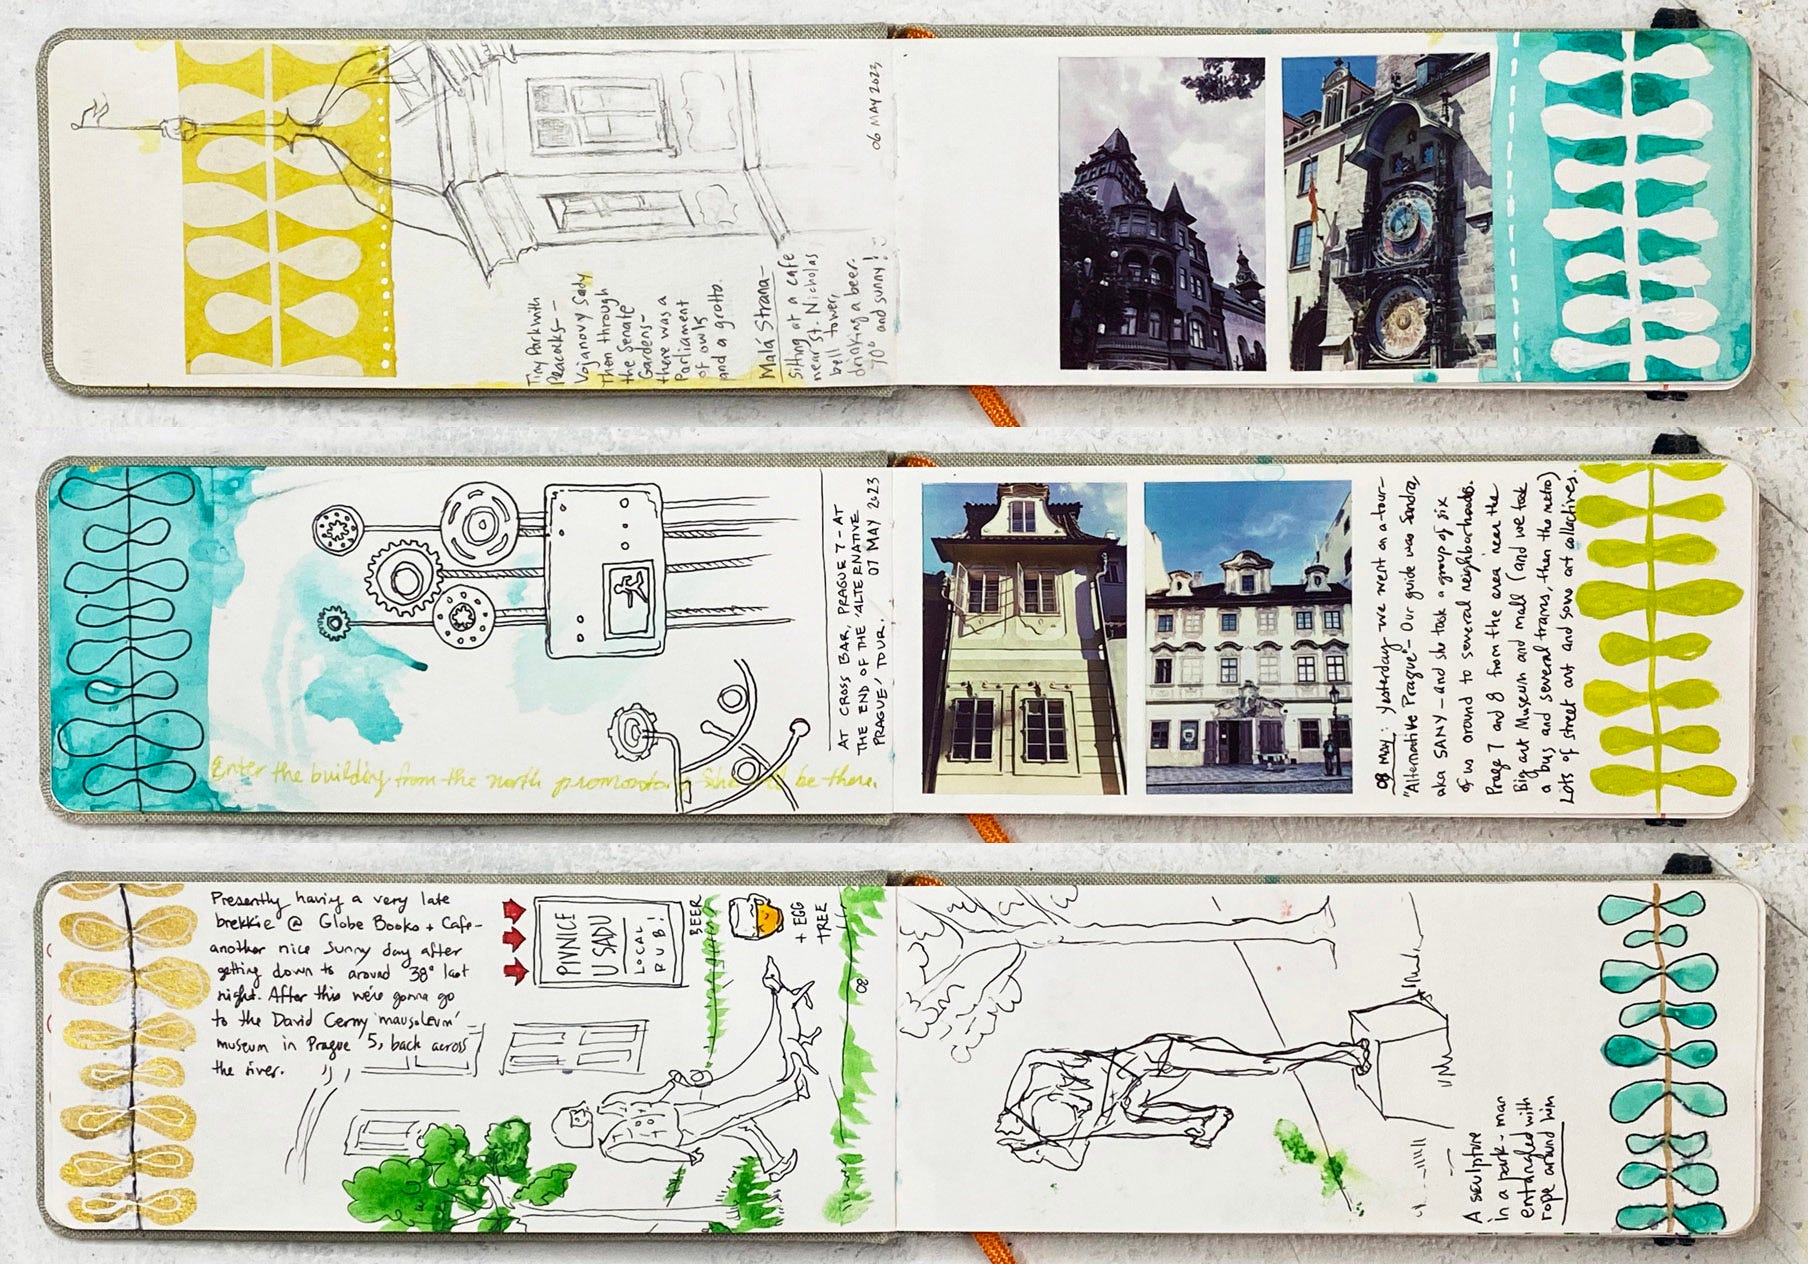 06 MAY 2023
Tiny Park with
Peacocks -
Vojanovy Sady
Then through
the Senate
Gardens -
there was a
Parliament
of owls
and a grotto.
Malá Strana -
Sitting at a cafe
near St. Nicholas
bell tower,
drinking a beer.
70° and sunny!
AT CROSS BAR, PRAGUE 7 - AT
THE END OF THE 'ALTERNATIVE
PRAGUE' TOUR.
07 MAY 2023
Enter the building from the north promontory be there.
08 May: Yesterday we went on a tour -
"Alternative Prague" - Our guide was Sandra,
aka SANY - and she took a group of six
of us around to several neighborhoods.
Prague 7 and 8 from the area near the
Big art Museum and mall (and we took
a bus and several trams, then the metro)
Lots of street art and some art collectives.
Presently having a very late
brekkie @ Globe Books + Cafe -
another nice sunny day after
getting down to around 38° last
night. After this we're gonna go
to the David Cerny 'mausoleum'
museum in Prague 5, back across
the river.
PIVNICE
U SADU
LOCAL
PUB!
BEER
+ EGG
TREE
08
A sculpture
in a park - man
entangled with
rope around him